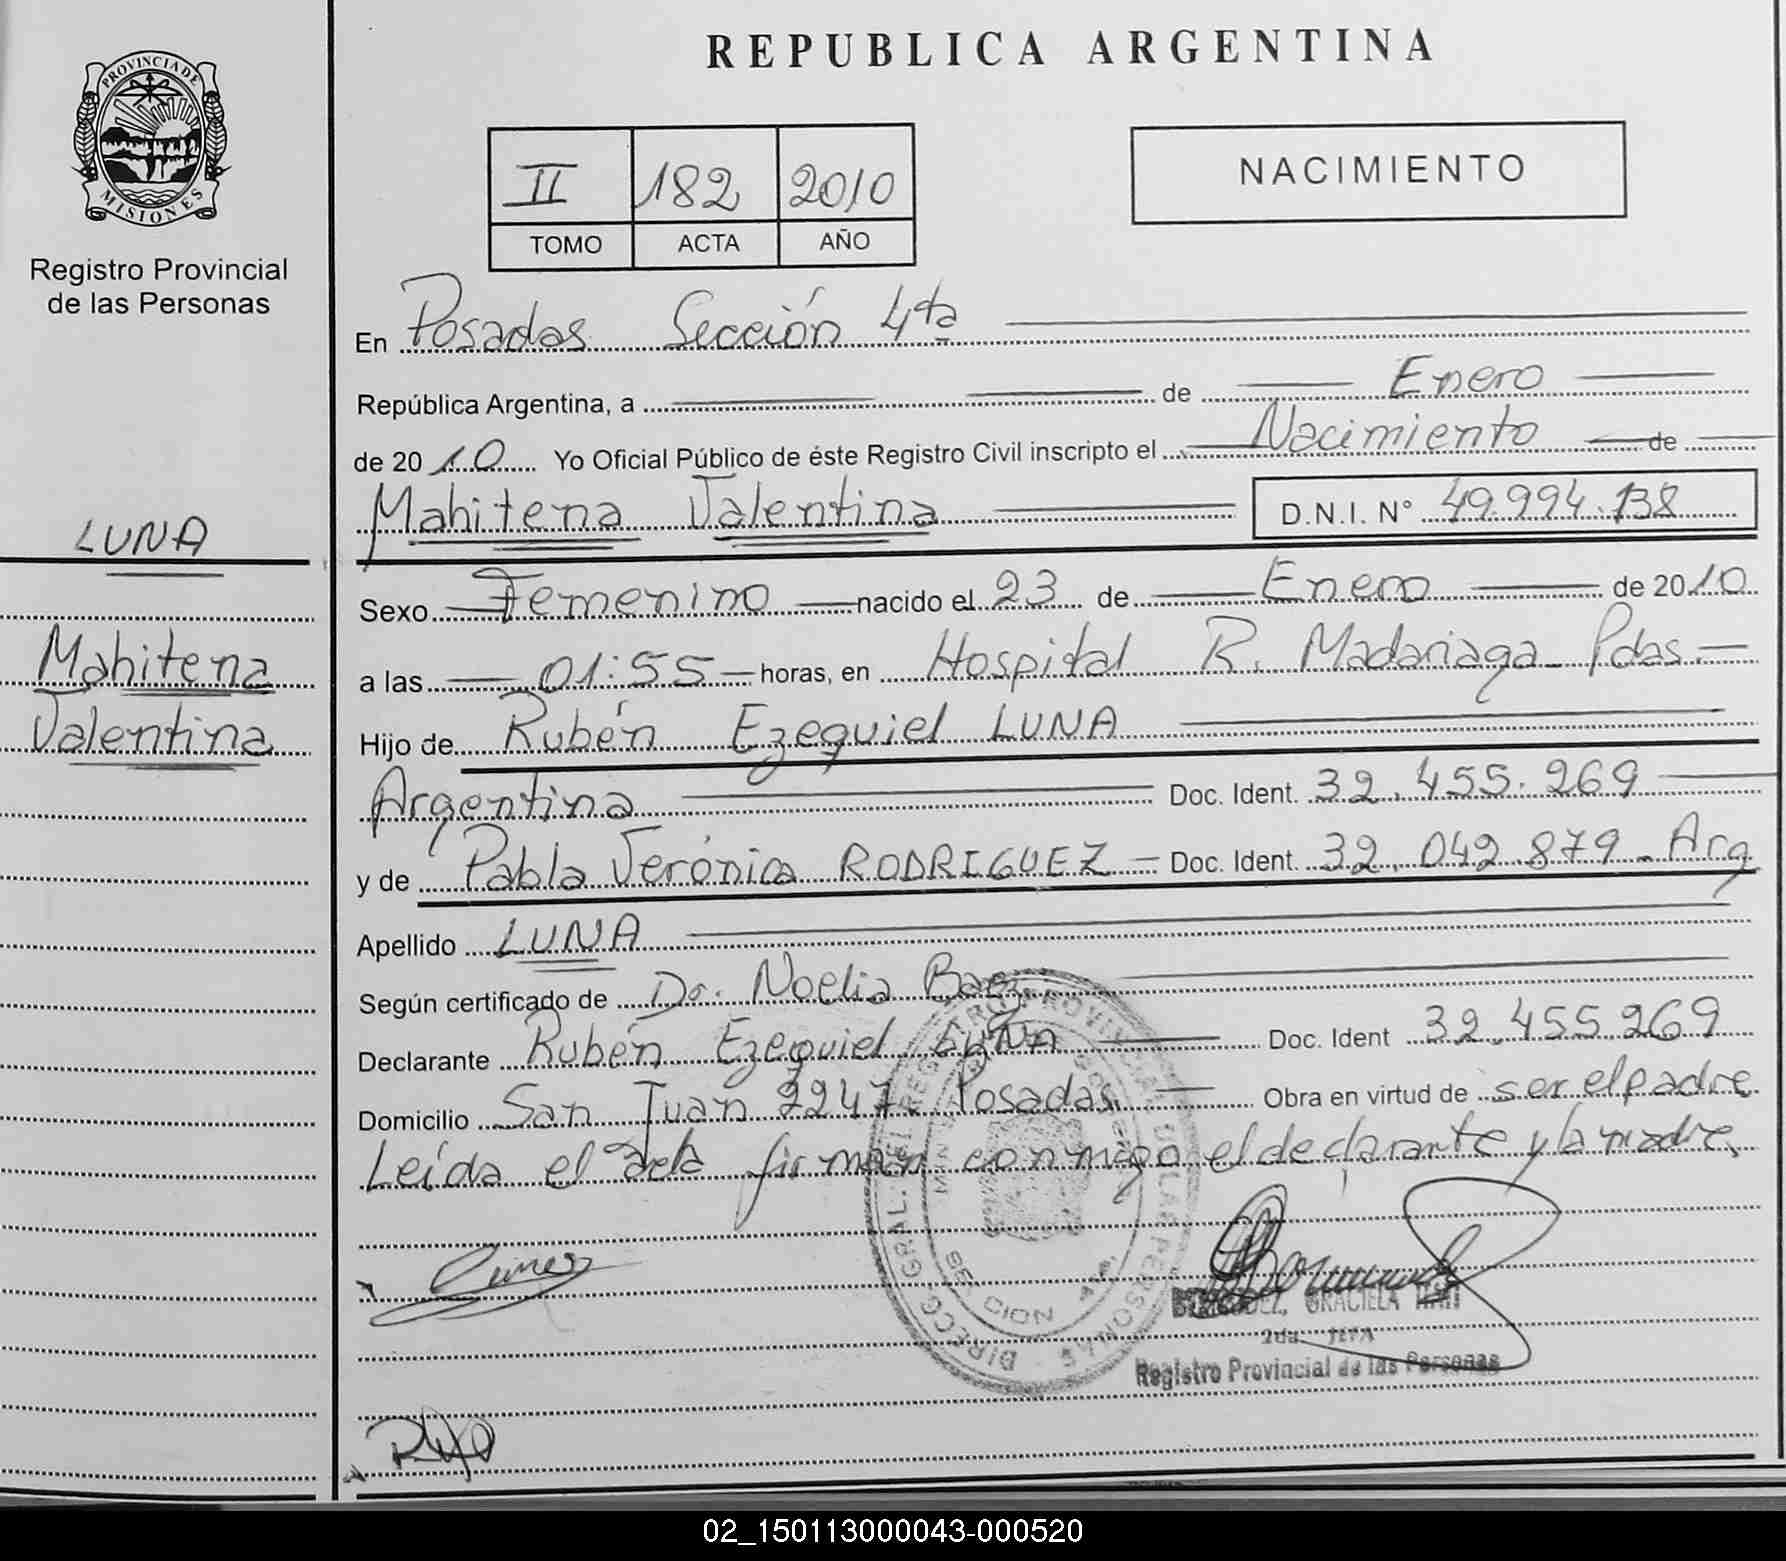 REPUBLICA ARGENTINA
PROVINCIA DE
MISIONES
Registro Provincial
de las Personas
II 182 2010
TOMO ACTA AÑO
NACIMIENTO
En Posadas Sección 4ta
República Argentina, a de Enero
de 2010 Yo Oficial Público de éste Registro Civil inscripto el Nacimiento de
Mahitena Valentina D.N.I. N° 49.994.138
LUNA
Mahitena
Valentina
Sexo Femenino nacido el 23 de Enero de 2010
a las 01:55 horas, en Hospital R. Madariaga Pdas.
Hijo de Rubén Ezequiel LUNA
Argentina Doc. Ident. 32.455.269
y de Pabla Verónica RODRIGUEZ Doc. Ident. 32.042.879 Arg
Apellido LUNA
Según certificado de Noelia Baez
Declarante Rubén Ezequiel Luna Doc. Ident 32.455.269
Domicilio San Juan 2247 Posadas Obra en virtud de ser el padre
Leída el acta firman conmigo el declarante y la madre.
DIRECC. GRAL. DEL REGISTRO PROVINCIAL DE LAS PERSONAS
SECCION 4ta
GRACIELA
2da. JEFA
Registro Provincial de las Personas
02_150113000043-000520